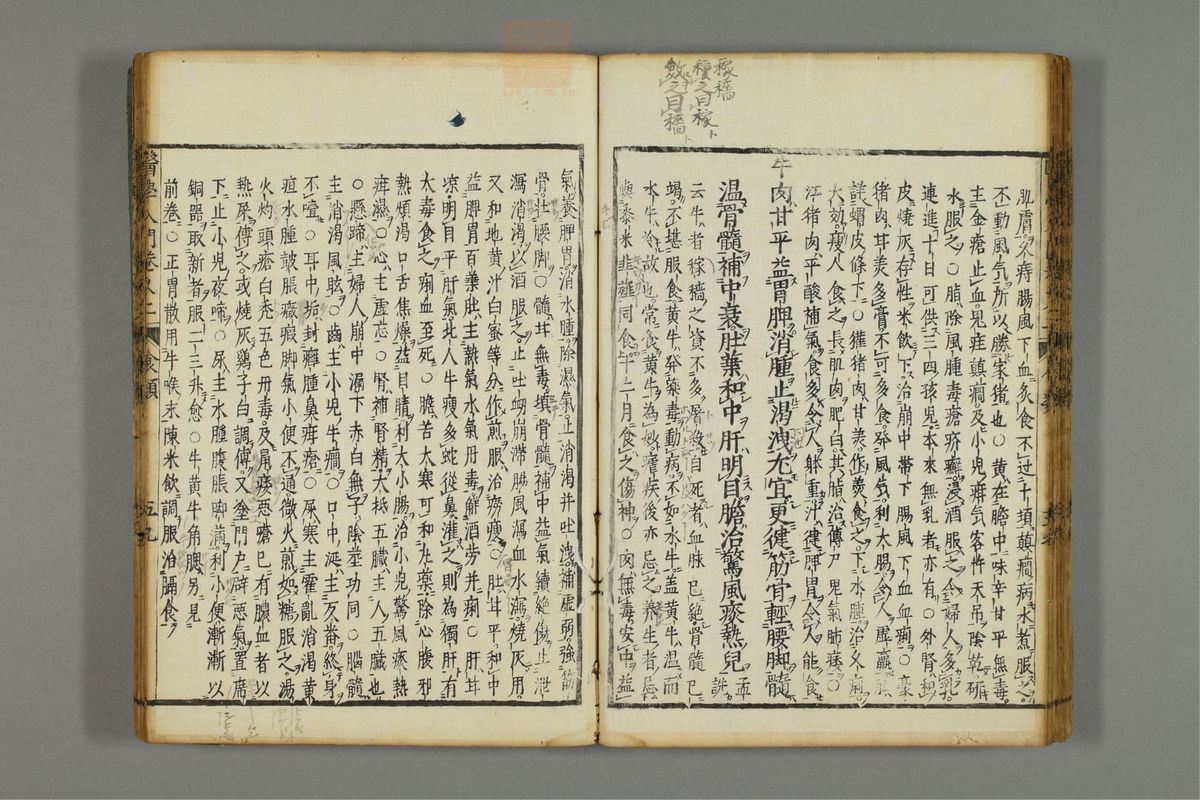 稼穡
種之曰稼
斂之曰穡
肌膚不痔腸風下血炙食不过十頓顛癇病水煮服之
不動風氣所以勝家猪也○黄在膽中味辛甘平無毒
主金瘡止血兒疰顛癇及小兒疳氣客忤天吊陰乾研
水服之○脂除風腫毒瘡疥癬浸酒服之令婦人多乳
連進十日可供三四孩兒本來無乳者亦有○外腎和
皮燒灰存性米飲下治崩中帶下腸風下血血痢○豪
猪肉甘美多膏不可多食發風氣利大腸令人虛羸肚
詳蝟皮條下○獾猪肉甘美作羹食之下水腫治久痢
大効瘦人食之長肌肉肥白其脂治傳尸鬼氣肺痿○
江猪肉平酸補氣食多令人躰重汁健脾胃令人能食
牛肉甘平益胃脾消腫止渴洩尤宜更健筋骨輕腰脚髓
温骨髓補中衰肚藥和中肝明目膽治驚風痰熱兒
云牛者稼穡之資不多屠殺自死者血脉已絶骨髓已
竭不堪服食黄牛發藥毒動病不如水牛盖黄牛温而
水牛冷故也常食黄牛為妙瘥疾後亦忌之養生者忌
與黍米韭薤同食牛二月食之傷神○肉無毒安中益
氣養脾胃消水腫除濕氣止消渴并吐洩補虛弱強筋
骨壯腰脚○髓甘無毒填骨髓補中益氣續絶傷止泄
瀉消渴以酒服之止吐衂崩滯腸風瀉血水瀉燒灰用
又和地黄汁白蜜等分作煎服治癆瘦○肚甘平和中
益脾胃百葉肚主熱氣水氣丹毒觧酒劳并痢○肝甘
凉明目平肝氣北人牛瘦多蛇從鼻灌之則為獨肝有
太毒食之痢血至死○膽苦大寒可和九藥除心腹利
熱煩渴口舌焦燥益目睛利大小腸治小兒驚風痰熱
痺濕○心主虛忘○腎補腎精大抵五臟主人五臟也
○懸蹄主婦人崩中漏下赤白無子陰莖功同○腦髓
主消渴風眩○齒主小兒牛癇○口中涎主反胃終身
不噎○耳中垢封癰腫鼻疳瘡○屎寒主霍亂消渴黄
疸水腫皷脹癥瘕脚氣小便不通微火煎如糖服之湯
火灼頭瘡白秃五色丹毒及鼠瘻恶瘡已有膿血者以
熱屎傅之或燒灰鷄子白調傅又塗門户辟恶氣置席
下止小兒夜啼○尿主水腫腹脹脚滿利小便漸漸以
銅器取新者服二三升愈○牛黄牛角䚡另見
前卷○正胃散用牛喉末陳米飲調服治膈食
醫學入門卷又二
五九